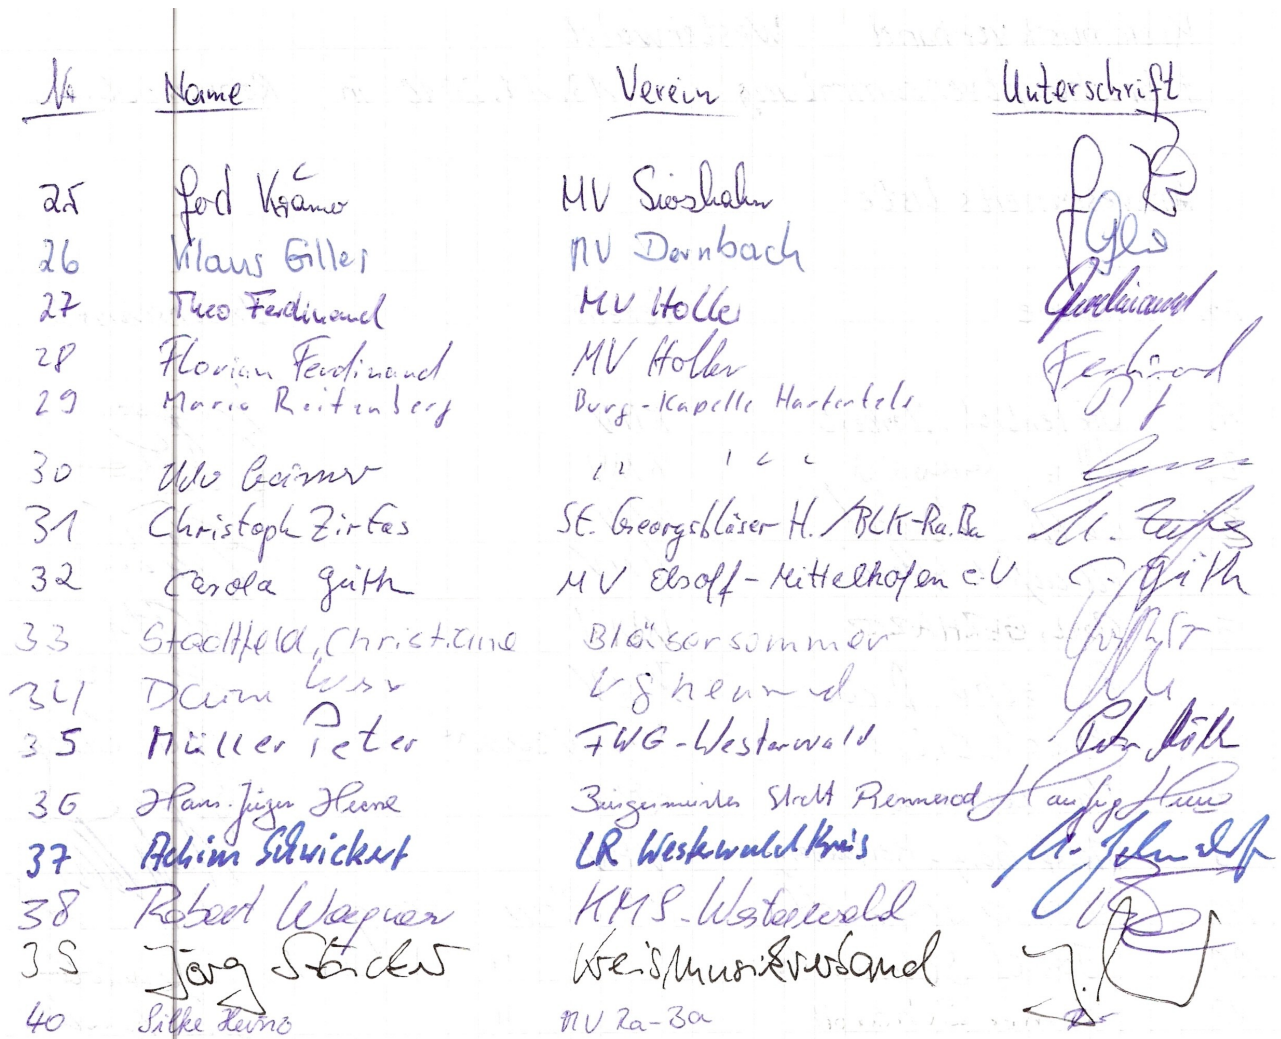 Nr Name Verein Unterschrift
25 Gerd Krämer MV Siershahn
26 Klaus Giller MV Dernbach
27 Theo Ferdinand MV Holler Ferdinand
28 Florian Ferdinand MV Holler Ferdinand
29 Mario Reitenberg Burg-Kapelle Hartenfels
30 Udo " " " "
31 Christoph Zirfas St. Georgsbläser H./BLK-Ra.Ba
32 Carola Güth MV Elsoff-Mittelhofen e.V C. Güth
33 Stadtfeld, Christiane Bläsersommer
34
35 Müller Peter FWG-Westerwald
36 Hans-Jürgen Heene Bürgermeister Stadt Rennerod
37 Achim Schwickert LR Westerwaldkreis
38 Robert Wagner KMS-Westerwald
39 Jörg Stöcker Kreismusikverband
40 Silke MV Ra-Ba